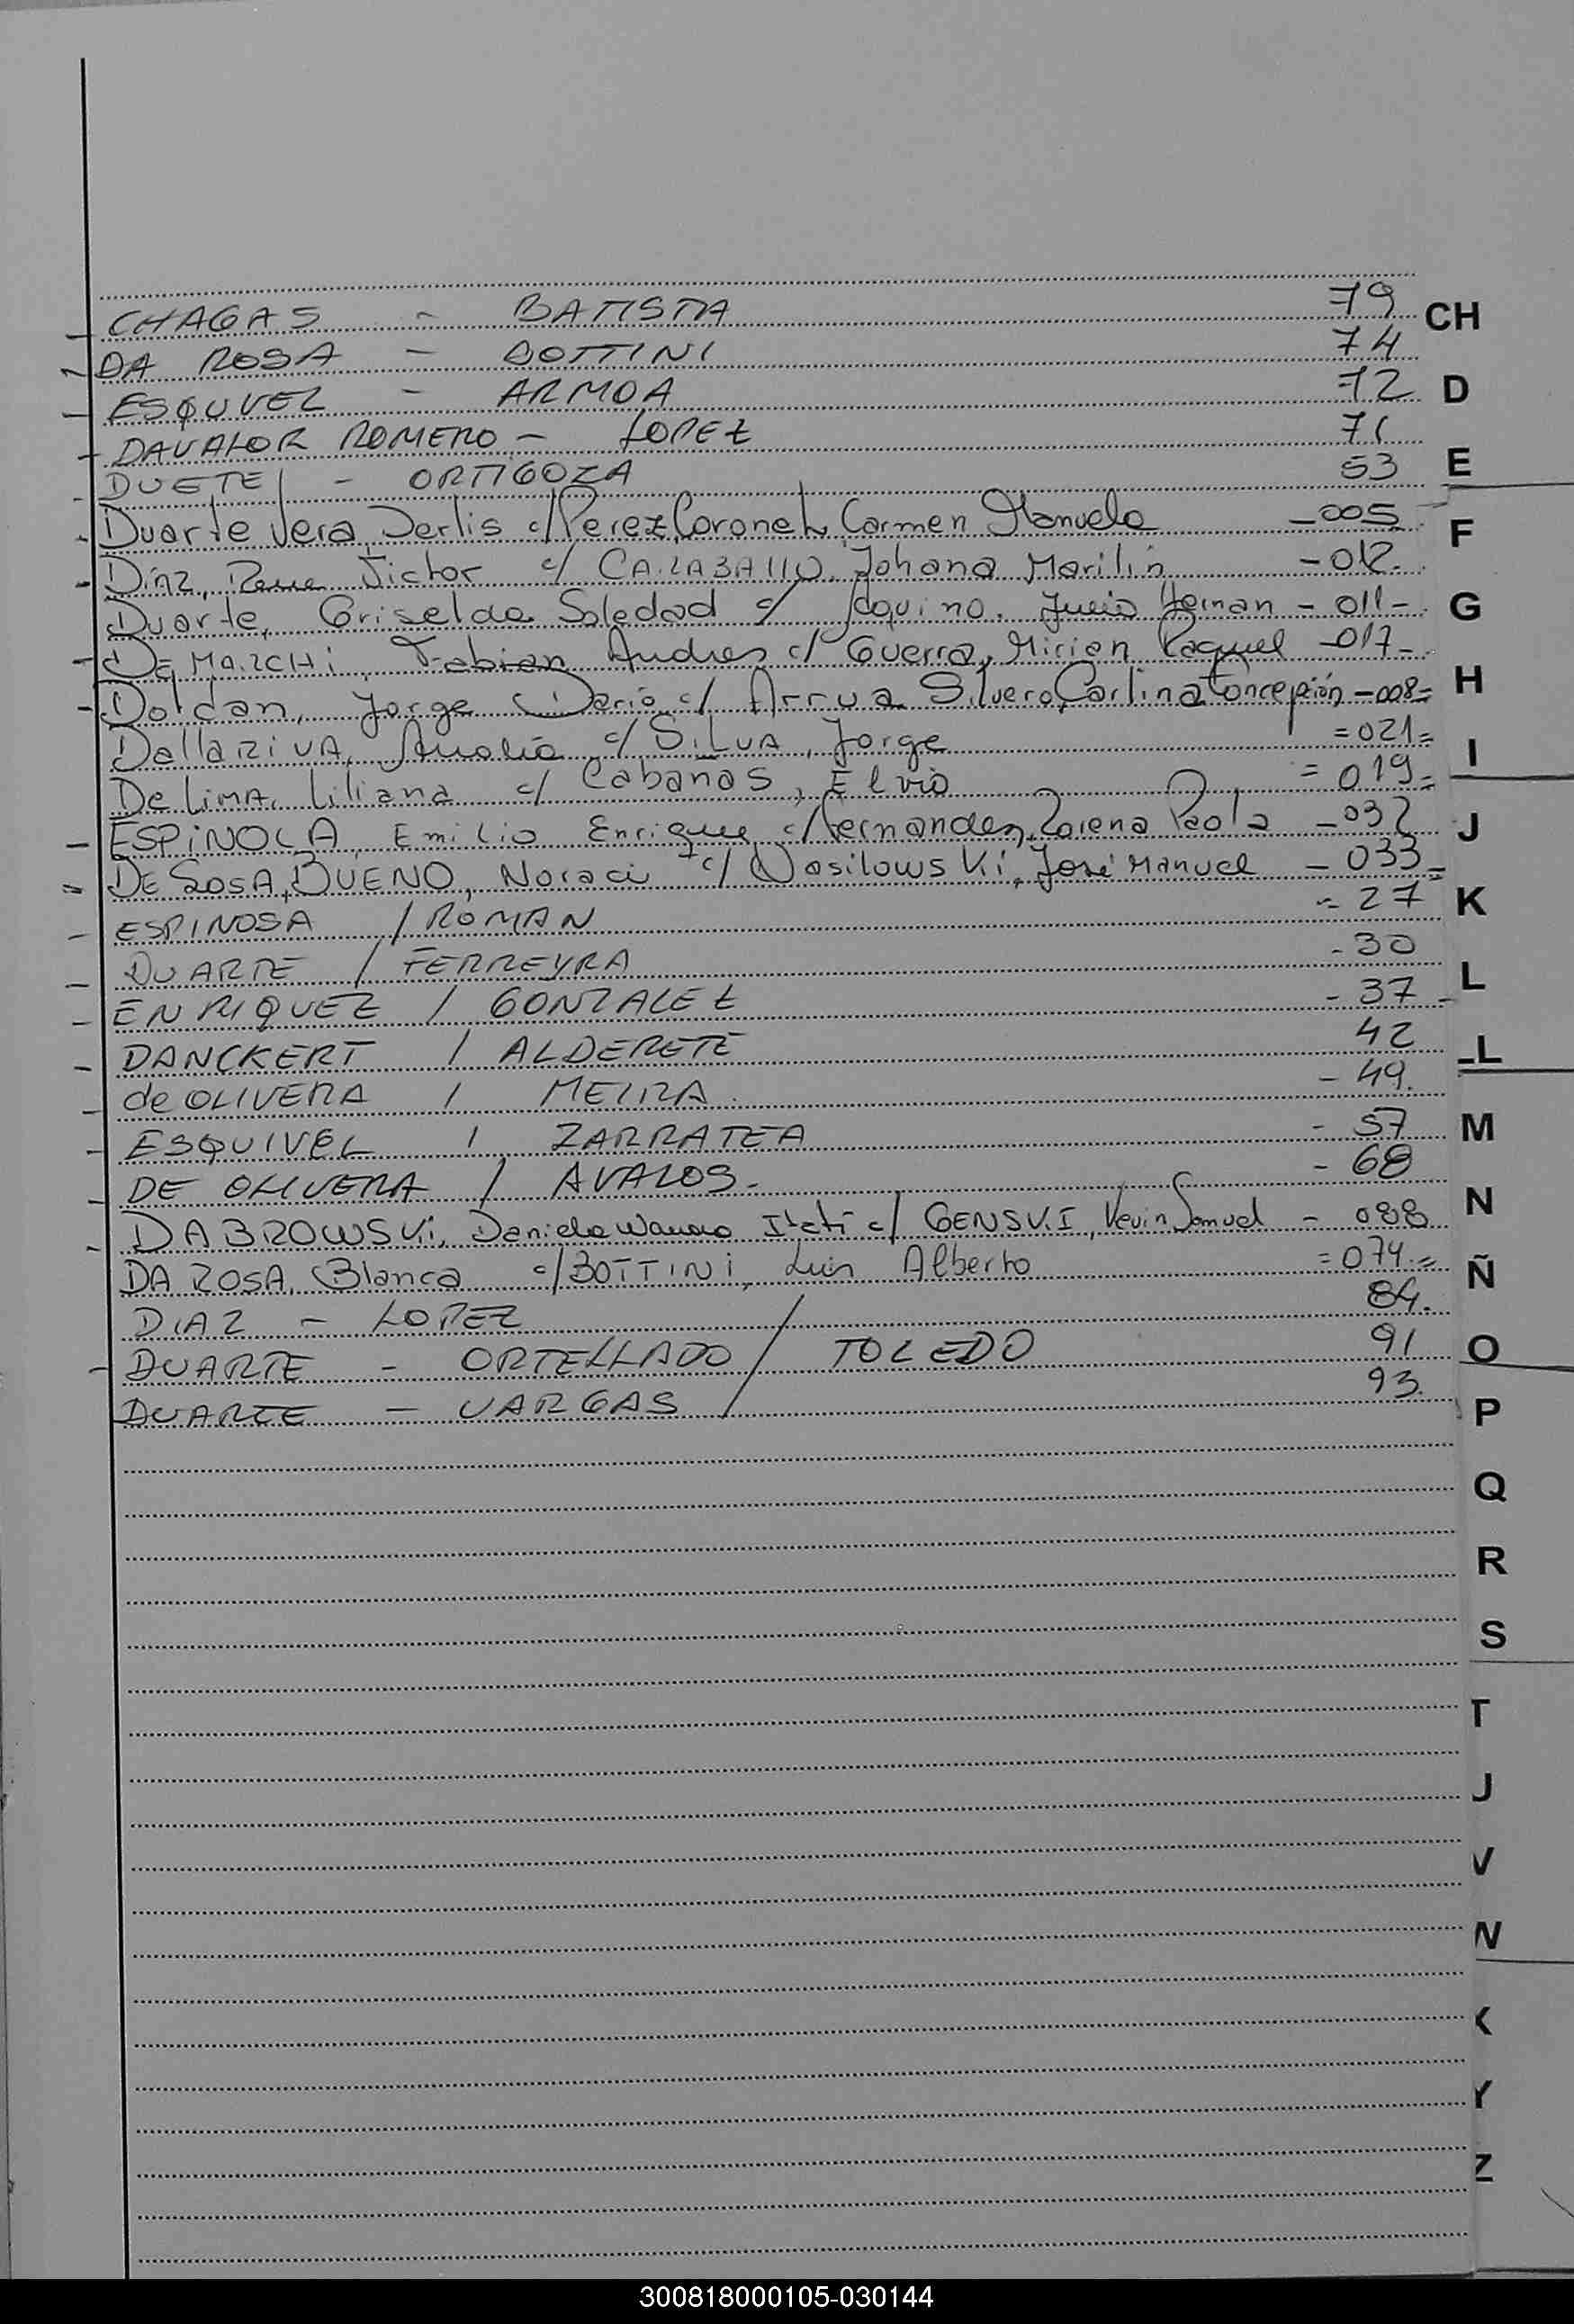 CHAGAS - BATISTA 79
DA ROSA - BOTTINI 74
ESQUVEL - ARMOA 72
DAVALOR ROMERO - LOPEZ 71
DUETE - ORTIGOZA 53
Duarte Vera Derlis c/ Perez Coronel, Carmen Manuela -005
Dinz, Rene Victor c/ CARABALLO, Johana Marilin -012.
Duarte, Griselda Soledad c/ Aquino, Julio Hernan - 011-
De MARCHi, Fabian Andres c/ Guerra, Mirian Raquel -017-
Doldan, Jorge Dario c/ Arrua Silvero, Carlina Concepción -008=
DallaRiVA, Analia c/ SiLVA, Jorge =021=
De LiMA, Liliana c/ Cabañas, Elvio = 019=
ESPiNOLA, Emilio Enrique c/ Fernandez, Lorena Paola -032
DE SOSA, BUENO, Noraci c/ Wosilowski, José Manuel - 033=
ESPINOSA / ROMAN - 27
DUARTE / FERREYRA - 30
ENRIQUEZ / GONZALEZ - 37-
DANCKERT / ALDERETE 42
de OLIVERA / MEIRA - 49.
ESQUIVEL / ZARRATEA - 57
DE OLIVERA / AVALOS. - 68
DABROWSKi, Daniela Itati c/ GENSKI, Kevin Samuel - 088
DA ROSA, Blanca c/ BOTTINi, Luis Alberto =074.=
DIAZ - LOPEZ 84.
DUARTE - ORTELLADO / TOLEDO 91
DUARTE - VARGAS / 93.
CH
D
E
F
G
H
I
J
K
L
LL
M
N
Ñ
O
P
Q
R
S
T
U
V
W
X
Y
Z
300818000105-030144